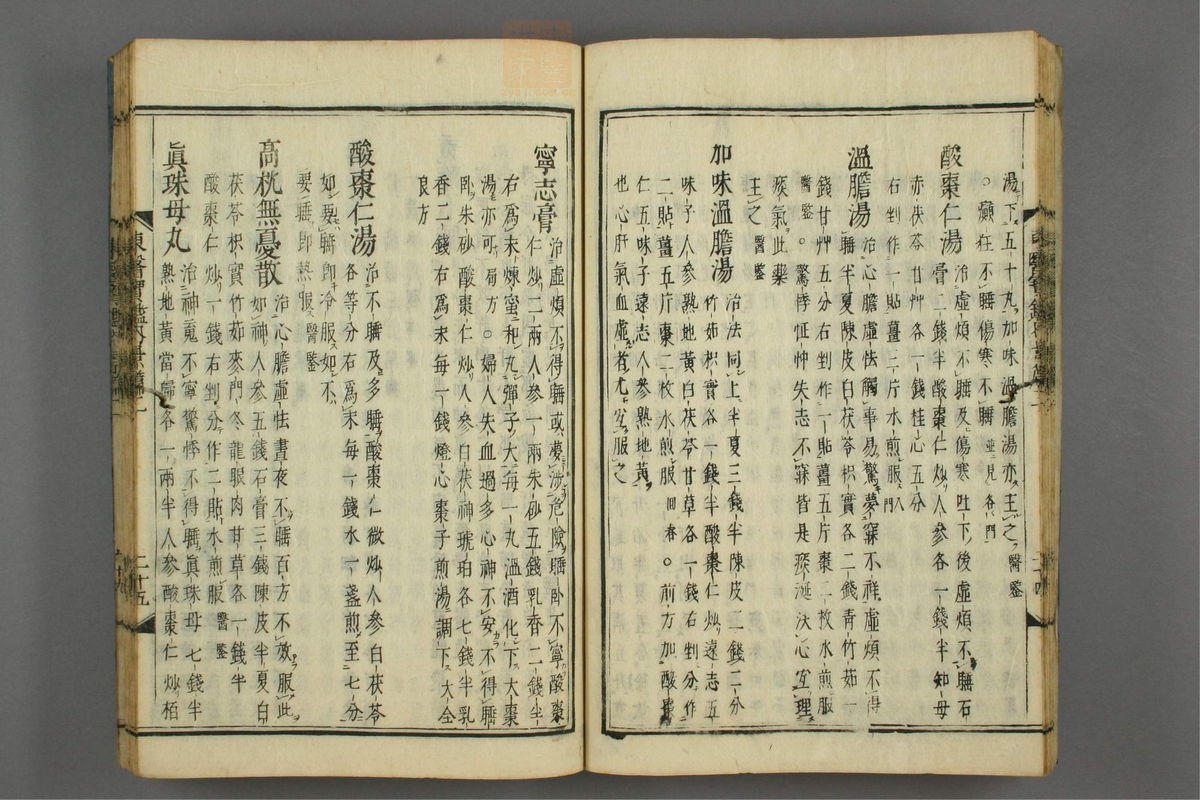 湯下五十丸加味溫膽湯亦主之醫鑒
○癲狂不睡傷寒不睡並見各門
酸棗仁湯
治虛煩不睡及傷寒吐下後虛煩不睡石
膏二錢半酸棗仁炒人參各一錢半知母
赤茯苓甘艸各一錢桂心五分
右剉作一貼薑三片水煎服入門
溫膽湯
治心膽虛怯觸事易驚夢寐不祥虛煩不得
睡半夏陳皮白茯苓枳實各二錢靑竹茹一
錢甘艸五分右剉作一貼薑五片棗二枚水煎服
醫鑒○驚悸怔忡失志不寐皆是痰涎沃心宜理
痰氣此藥
主之醫鑒
加味溫膽湯
治法同上半夏三錢半陳皮二錢二分
竹茹枳實各一錢半酸棗仁炒遠志五
味子人參熟地黃白茯苓甘草各一錢右剉分作
二貼薑五片棗二枚水煎服回春○前方加酸棗
仁五味子遠志人參熟地黃
也心肝氣血虛者尤宜服之
寧志膏
治虛煩不得睡或夢涉危險睡臥不寧酸棗
仁炒二兩人參一兩朱砂五錢乳香二錢半
右爲末煉蜜和丸彈子大每一丸溫酒化下大棗
湯亦可局方○婦人失血過多心神不安不得睡
臥朱砂酸棗仁炒人參白茯神琥珀各七錢半乳
香二錢右爲末每一錢燈心棗子煎湯調下大全
良方
酸棗仁湯
治不睡及多睡酸棗仁微炒人參白茯苓
各等分右爲末每一錢水一盞煎至七分
如要睡卽冷服如不
要睡卽熱服醫鑒
高枕無憂散
治心膽虛怯晝夜不睡百方不效服此
如神人參五錢石膏三錢陳皮半夏白
茯苓枳實竹茹麥門冬龍眼肉甘草各一錢半
酸棗仁炒一錢右剉分作二貼水煎服醫鑒
眞珠母丸
治神魂不寧驚悸不得睡眞珠母七錢半
熟地黃當歸各一兩半人參酸棗仁炒栢
東醫寶鑑內景篇一
二十五